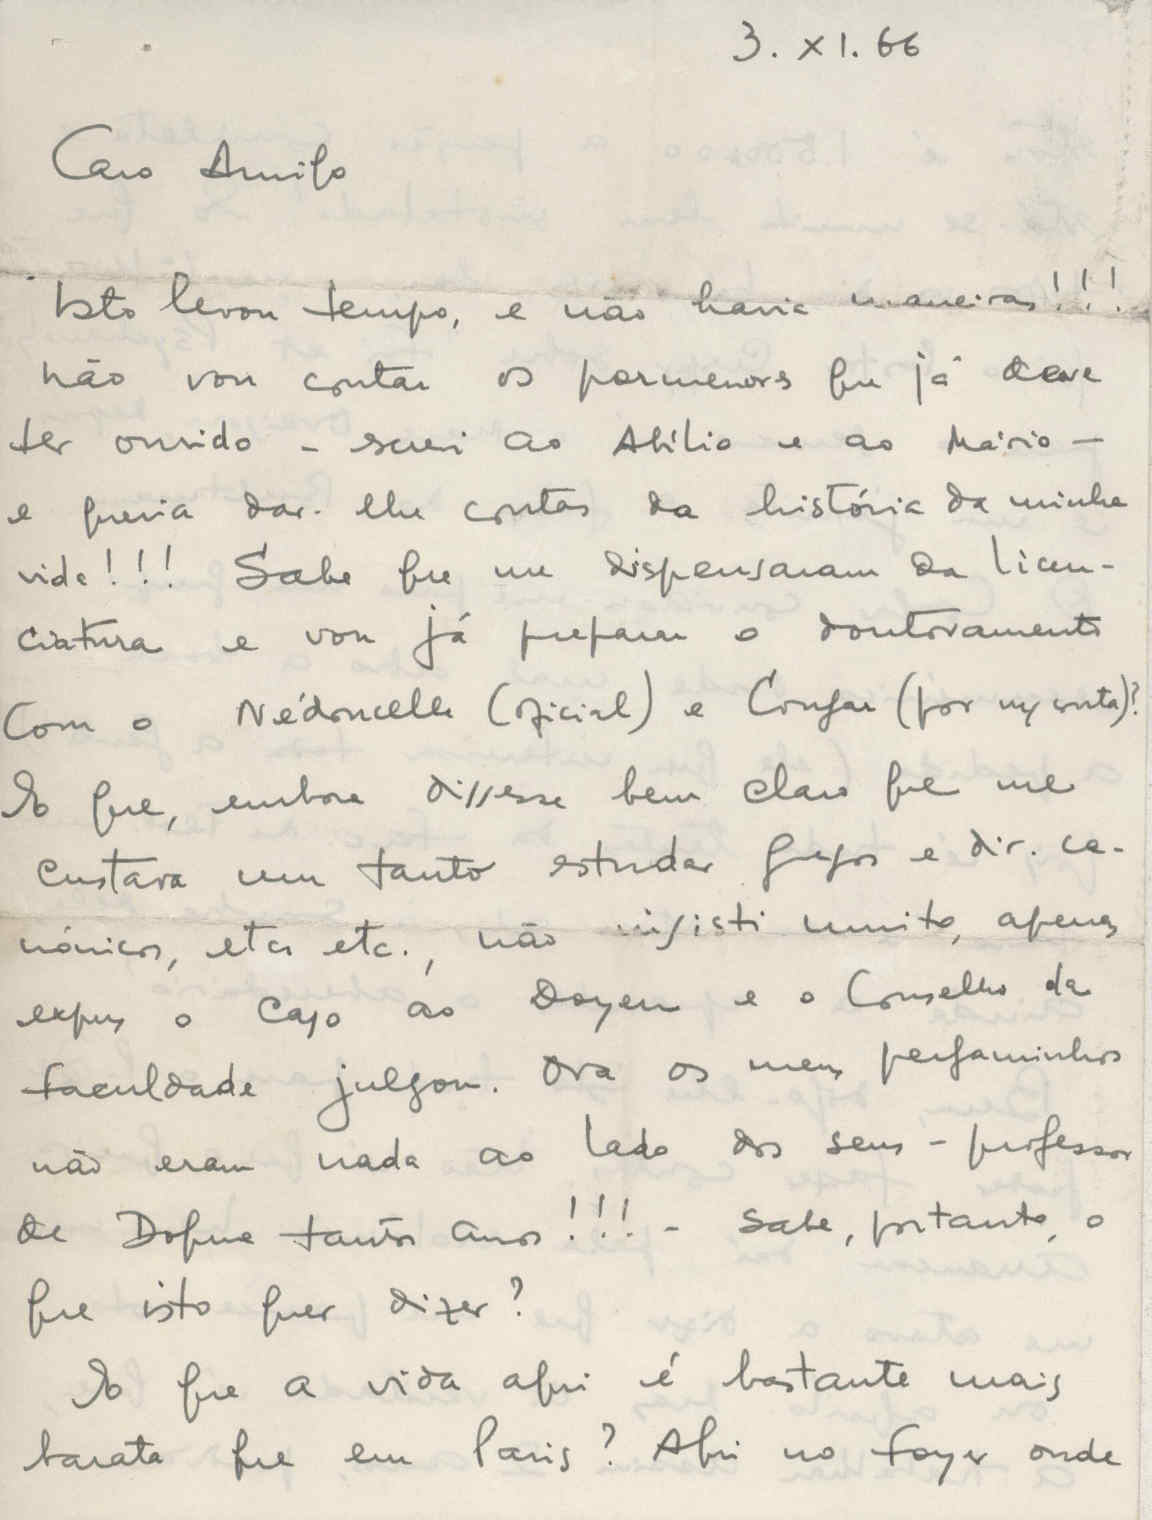 3. XI. 66
Caro Amigo
Isto levou tempo, e não havia maneiras!!!
Não vou contar os pormenores que já deve
ter ouvido – screvi ao Abílio e ao Mário –
e queria dar-lhe contas da história da minha
vida!!! Sabe que me dispensaram da licen-
ciatura e vou já preparar o doutoramento
com o Nédoncelle (oficial) e Congar (por my conta)?
É que, embora dissesse bem claro que me
custava um tanto estudar gregos e dir. ca-
nónicos, etcs etc., não insisti muito, apenas
expus o caso ao Doyen e o Conselho da
Faculdade julgou. Ora os meus pergaminhos
não eram nada ao lado dos seus – professor
de Dogma tantos anos!!! – Sabe, portanto, o
que isto quer dizer?
E que a vida aqui é bastante mais
barata que em Paris? Aqui no Foyer onde